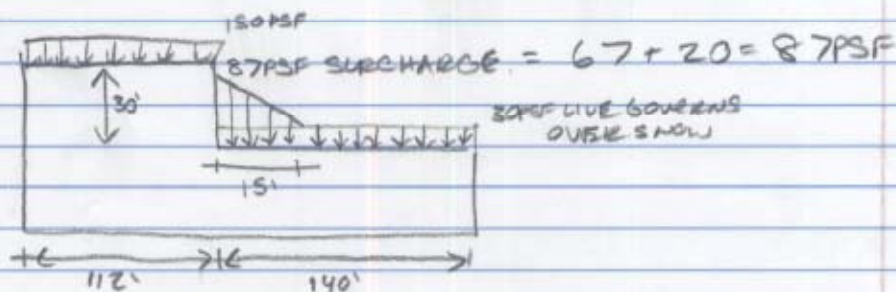 150PSF
87PSF SURCHARGE = 67 + 20 = 87PSF
30'
30PSF LIVE GOVERNS
OVER SNOW
15'
112'
140'